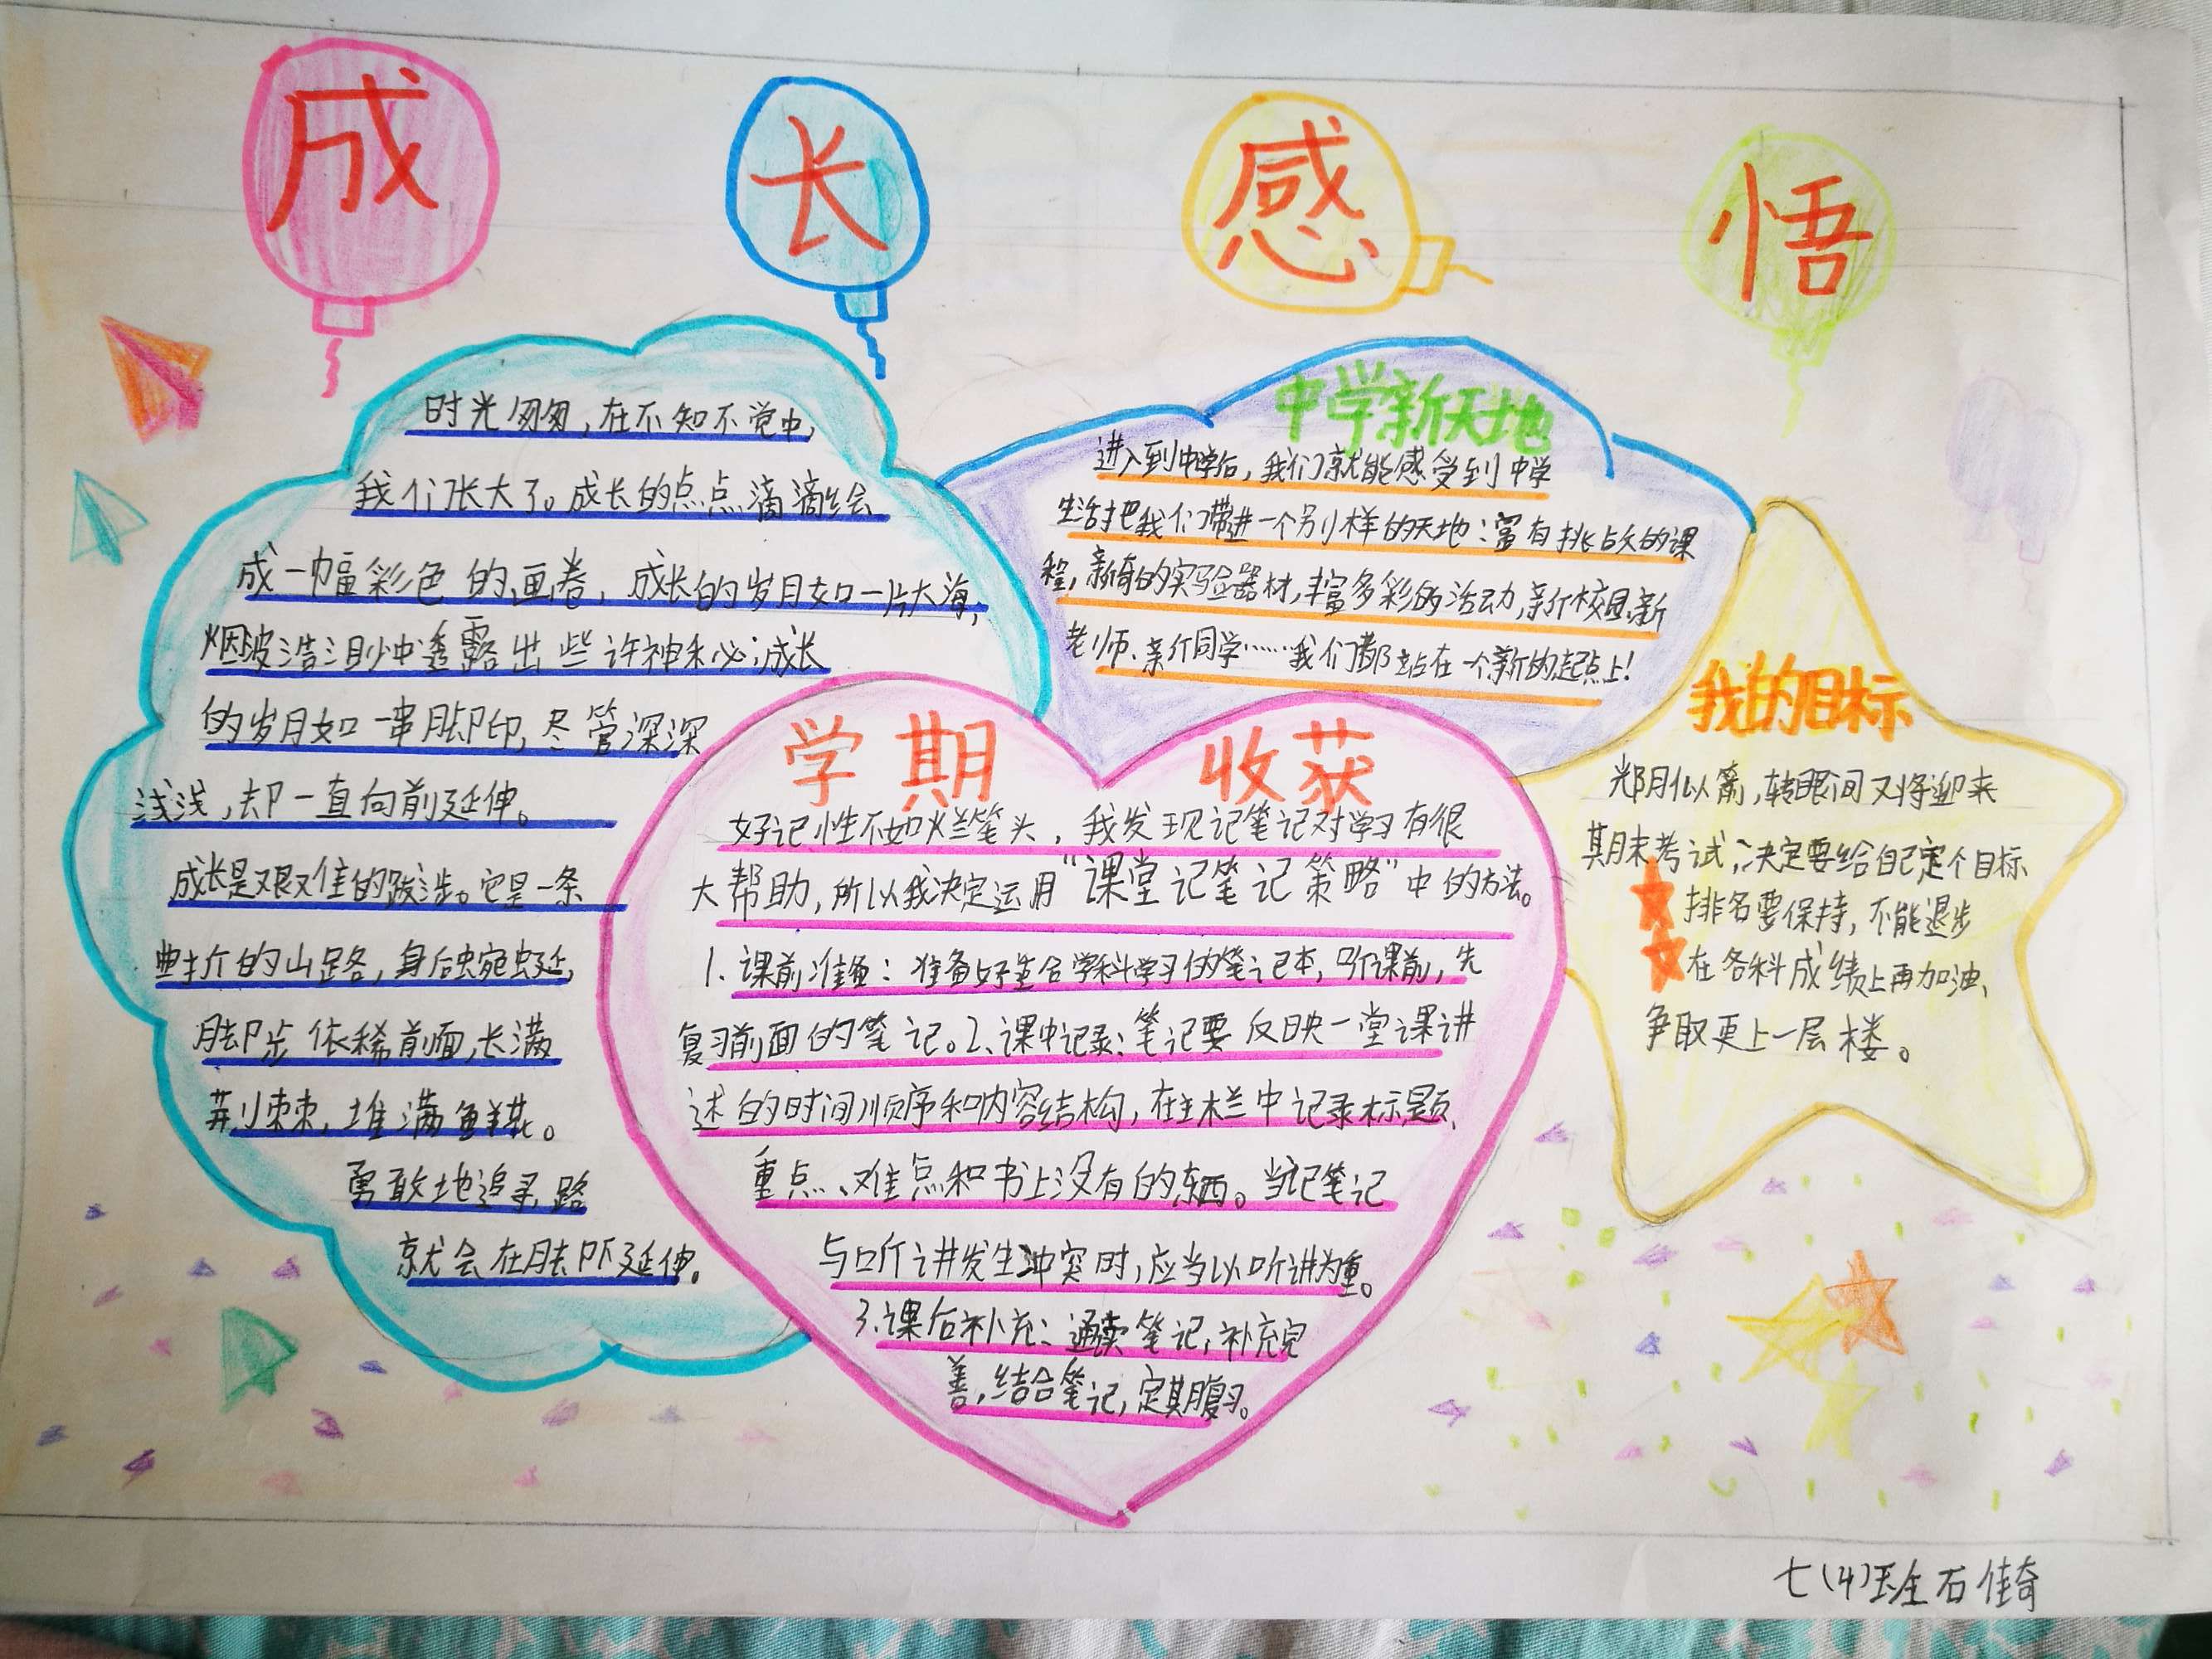 成长感悟
时光匆匆，在不知不觉中，
我们长大了。成长的点点滴滴绘
成一幅彩色的画卷，成长的岁月如一片大海，
烟波浩渺中透露出些许神秘；成长
的岁月如一串脚印，尽管深深
浅浅，却一直向前延伸。
成长是艰难的跋涉。它是一条
曲折的山路，身后蜿蜒，
脚步依稀前面，长满
荆棘，堆满鲜花。
勇敢地追寻，路
就会在脚下延伸。
中学新天地
进入到中学后，我们就能感受到中学
生活把我们带进一个别样的天地：富有挑战的课
程，新奇的实验器材，丰富多彩的活动，新校园、新
老师、新同学……我们都站在一个新的起点上！
学期 收获
好记性不如烂笔头，我发现记笔记对学习有很
大帮助，所以我决定运用“课堂记笔记策略”中的方法。
1.课前准备：准备好适合学科学习的笔记本，听课前，先
复习前面的笔记。2、课中记录：笔记要反映一堂课讲
述的时间顺序和内容结构，在主栏中记录标题、
重点、难点和书上没有的东西。当记笔记
与听讲发生冲突时，应当以听讲为重。
3.课后补充：通读笔记，补充完
善，结合笔记，定期复习。
我的目标
光阴似箭，转眼间又将迎来
期末考试，决定要给自己定个目标
排名要保持，不能退步
在各科成绩上再加油、
争取更上一层楼。
七(4)班石佳奇